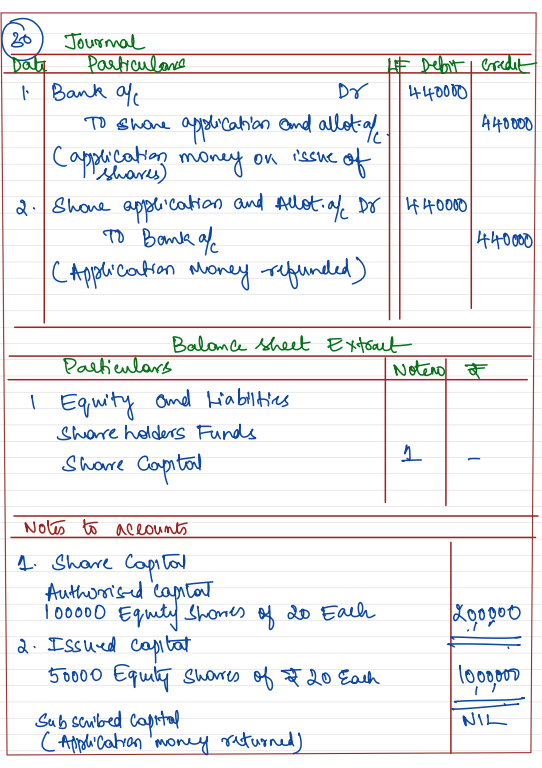 30 Journal
Date Particulars LF Debit Credit
1. Bank a/c Dr 440000
To share application and allot. a/c. 440000
(application money on issue of
shares)
2. Share application and Allot. a/c Dr 440000
To Bank a/c 440000
(Application Money refunded)
Balance sheet Extract
Particulars Noteno ₹
1 Equity and Liabilities
Shareholders Funds
Share Capital 1 -
Notes to accounts
1. Share Capital
Authorised Capital
100000 Equity Shares of 20 Each 200,000
2. Issued capital
50000 Equity Shares of ₹ 20 Each 1000000
Subscribed Capital NIL
(Application money returned)